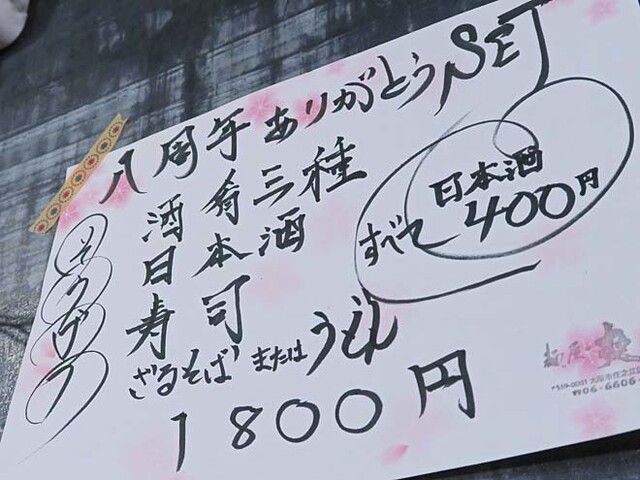 八周年ありがとうSET
酒肴三種
日本酒
寿司
ざるそばまたはうどん
1800円
日本酒
すべて400円
麺屋
〒559-0001 大阪市住之江区
☎06-6606